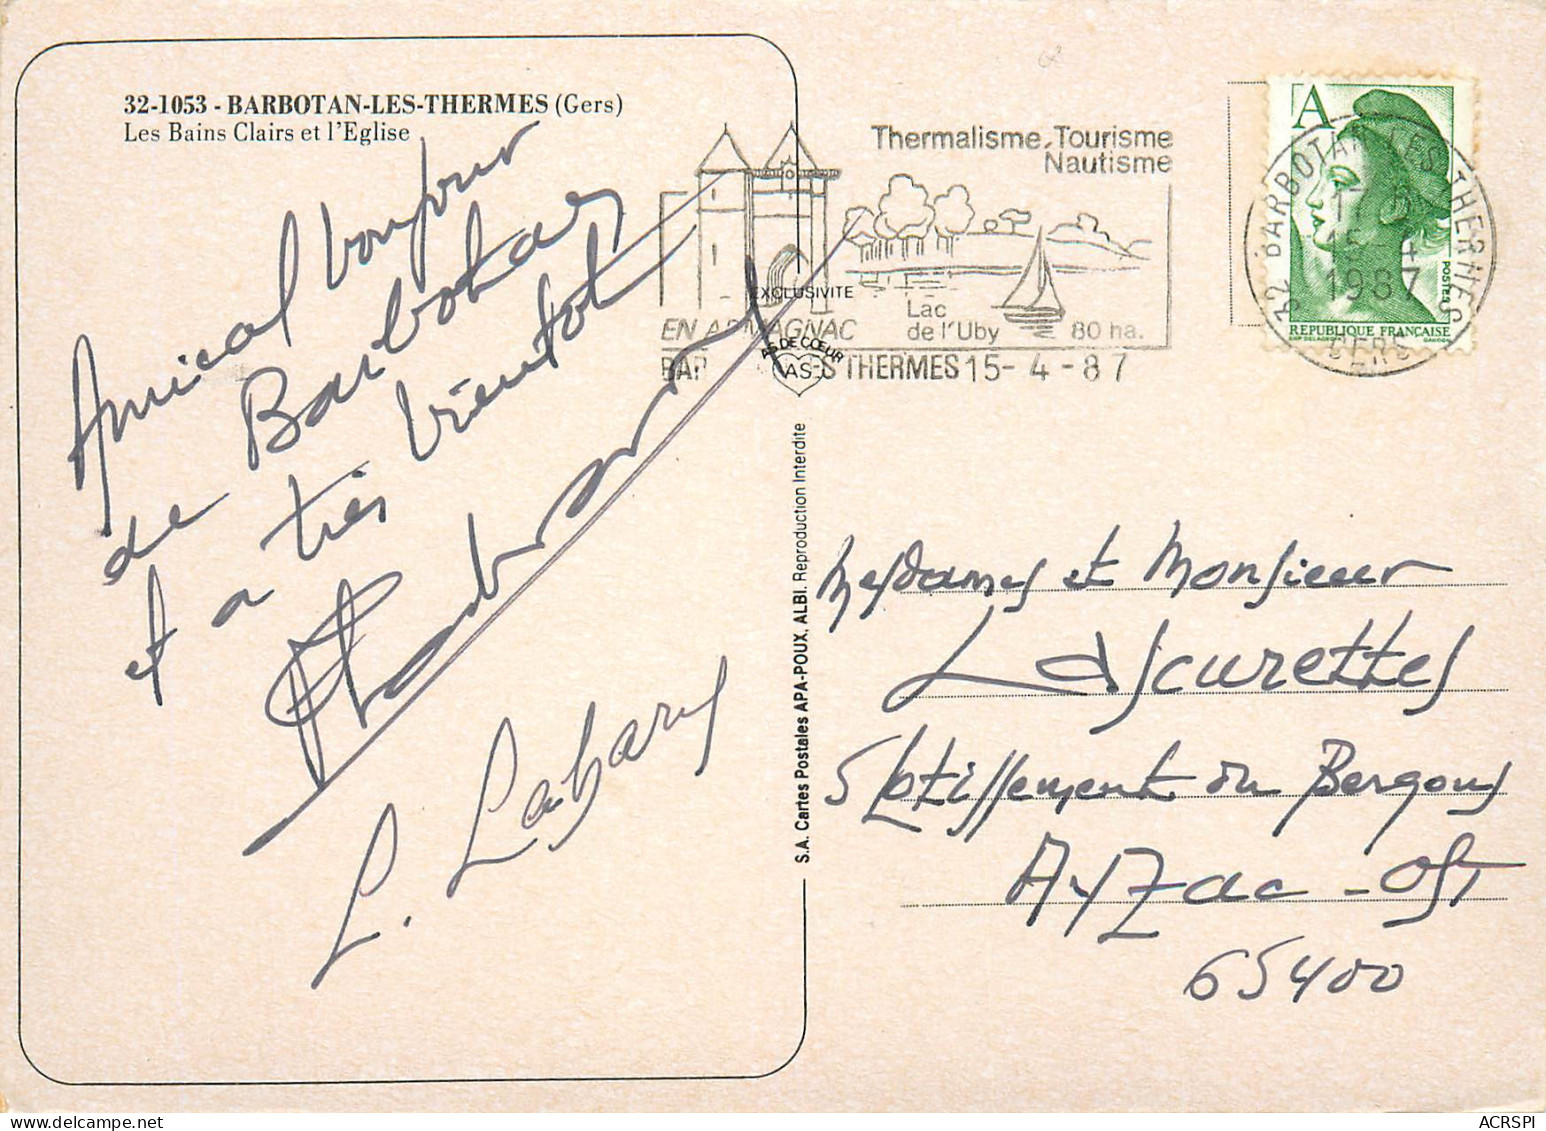 32-1053 - BARBOTAN-LES-THERMES (Gers)
Les Bains Clairs et l'Eglise
Amical bonjour
de Barbotan
et a très bientot
L. Labarry
Thermalisme, Tourisme
Nautisme
EXCLUSIVITE
EN ARMAGNAC
Lac
de l'Uby
80 ha.
AS DE CŒUR
AS
BAR
ES THERMES 15-4-87
A
POSTES
REPUBLIQUE FRANÇAISE
GANDON
32 BARBOTAN LES THERMES
17 H
15-4
1987
GERS
S.A. Cartes Postales APA-POUX, ALBI. Reproduction Interdite
Mesdames et Monsieur
Lascurettes
5 lotissement du Bergons
Ayzac-Ost
65400
ACRSPI